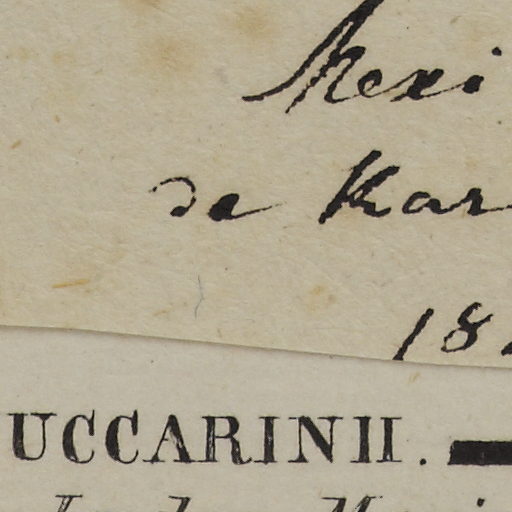 Mexi
de Kar
18
UCCARINII.